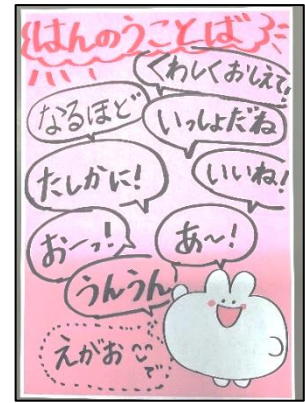 はんのうことば
くわしくおしえて!
なるほど
いっしょだね
たしかに!
いいね!
おーっ!
あ～!
うんうん
えがおで